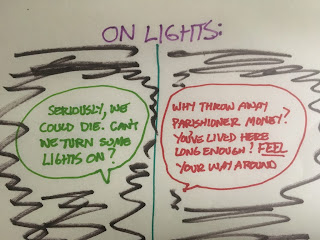 ON LIGHTS:
SERIOUSLY, WE
COULD DIE. CAN'T
WE TURN SOME
LIGHTS ON?
WHY THROW AWAY
PARISHIONER MONEY?
YOU'VE LIVED HERE
LONG ENOUGH! FEEL
YOUR WAY AROUND